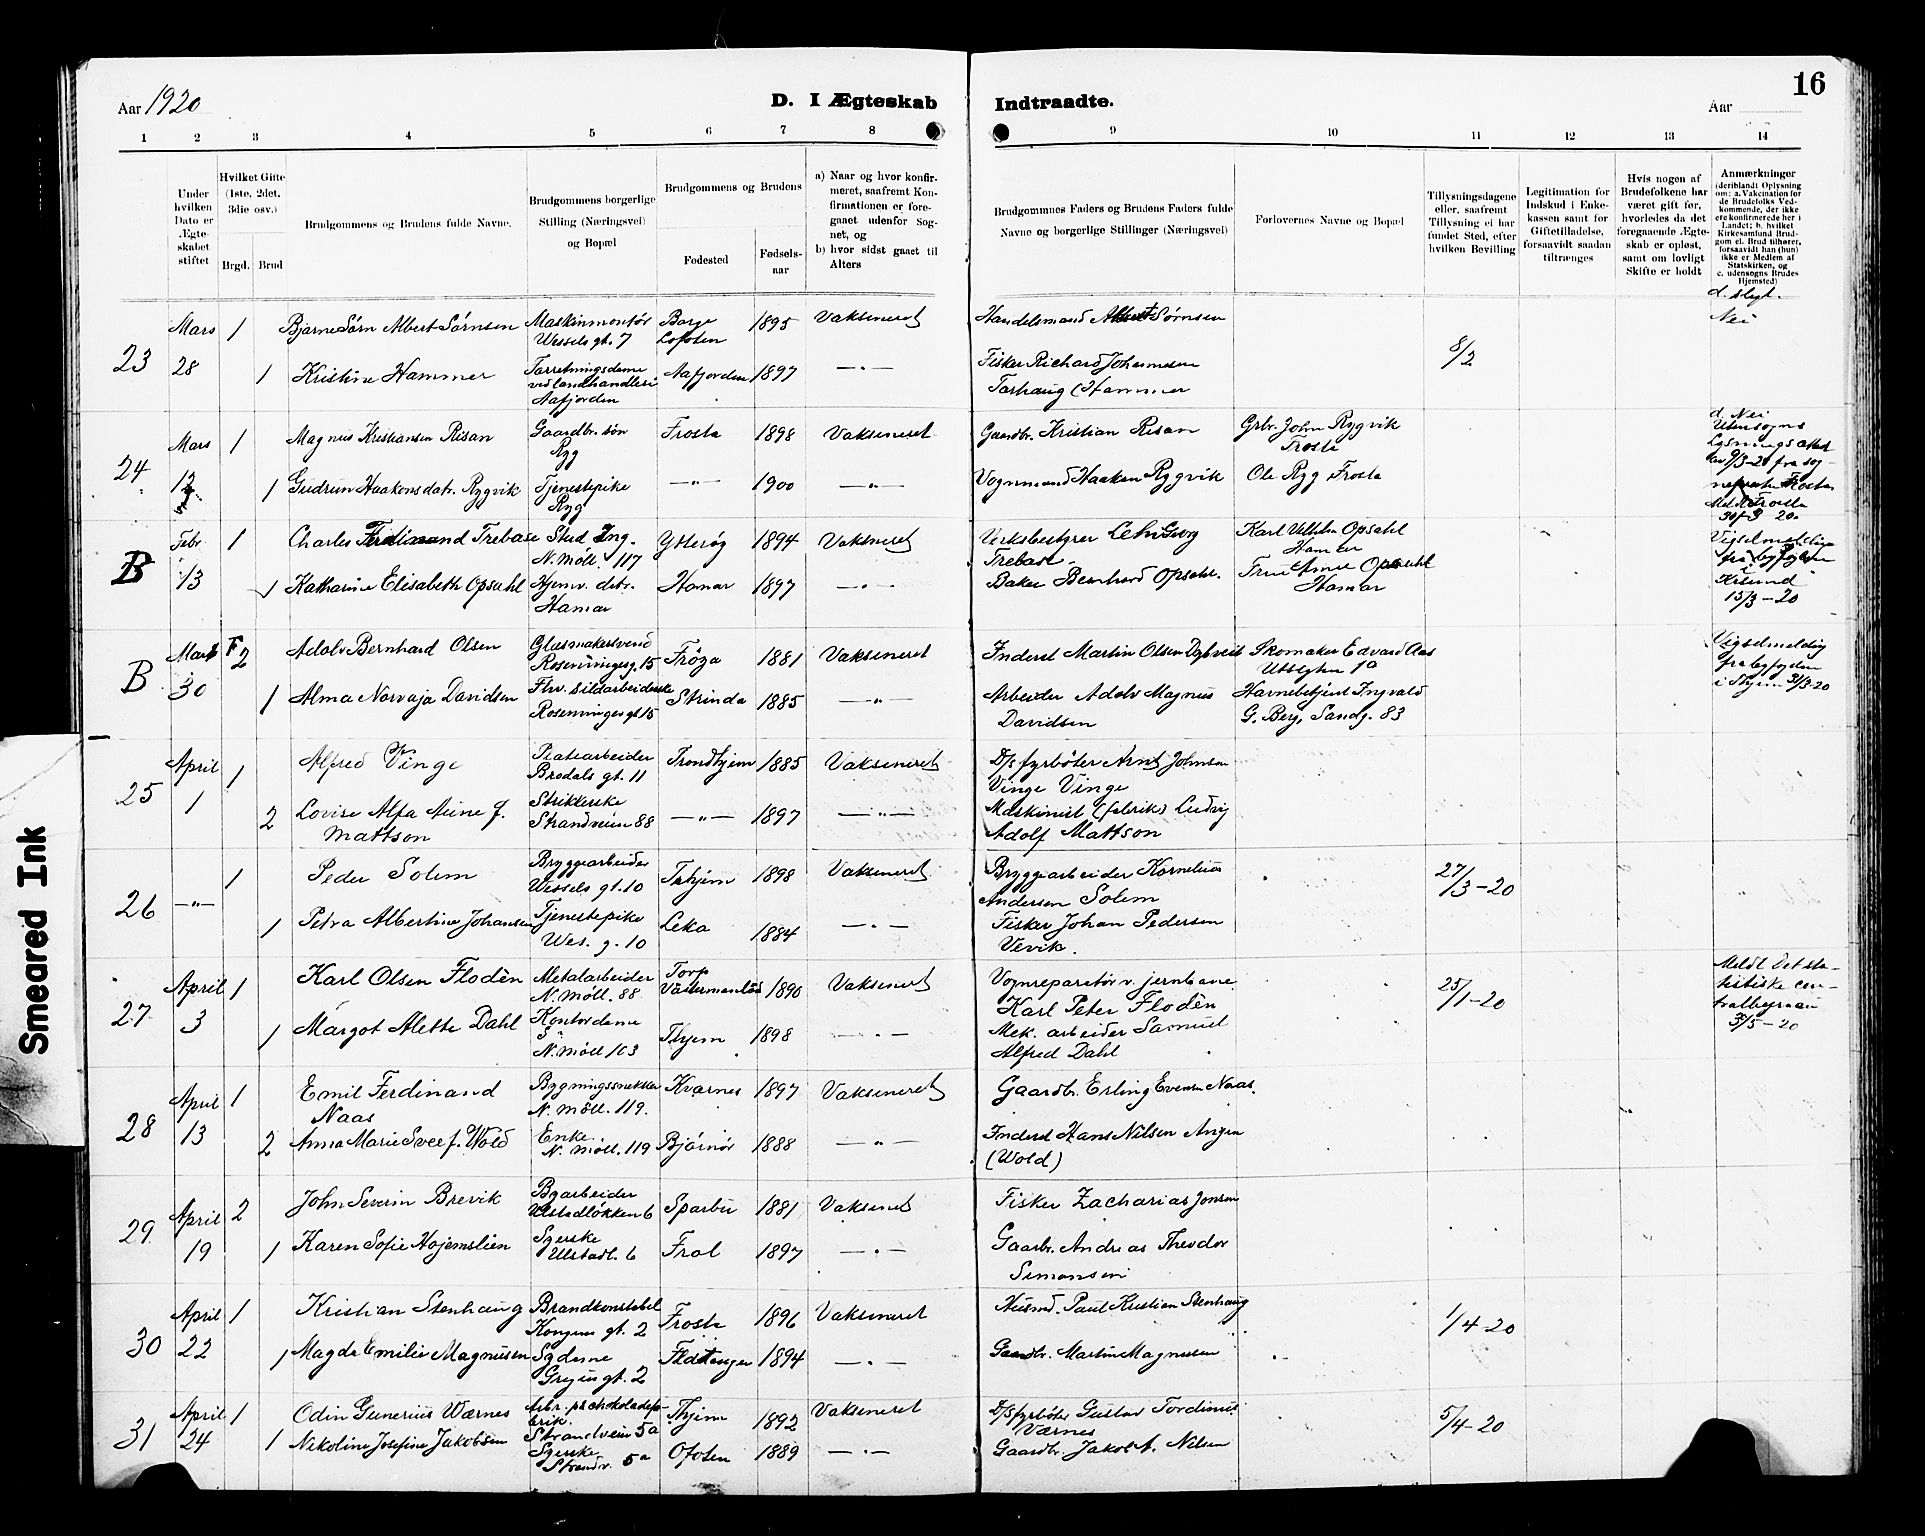 16
Aar 1920
D. I Ægteskab Indtraadte.
Aar
1 2 3 4 5 6 7 8 9 10 11 12 13 14
Under hvilken Dato er Ægteskabet stiftet
Hvilket Gifte (1ste, 2det, 3die osv.)
Brgd. Brud
Brudgommens og Brudens fulde Navne.
Brudgommens borgerlige Stilling (Næringsvei) og Bopæl
Brudgommens og Brudens
Fødested
Fødselsaar
a) Naar og hvor konfirmeret, saafremt Konfirmationen er foregaaet udenfor Sognet, og
b) hvor sidst gaaet til Alters
Brudgommnes Faders og Brudens Faders fulde Navne og borgerlige Stillinger (Næringsvei)
Forlovernes Navne og Bopæl
Tillysningsdagene eller, saafremt Tillysning ei har fundet Sted, efter hvilken Bevilling
Legitimation for Indskud i Enkekassen samt for Giftetilladelse, forsaavidt saadan tiltrænges
Hvis nogen af Brudefolkene har været gift før, hvorledes da det foregaaende Ægteskab er opløst, samt om lovligt Skifte er holdt
Anmærkninger (deriblandt Oplysning om: a. Vakcination for de Brudefolks Vedkommende, der ikke ere konfirmerede her i Landet; b. hvilket Kirkesamfund Brudgom el. Brud tilhører, forsaavidt han (hun) ikke er Medlem af Statskirken, og c. udensogns Brudes Hjemsted)
d. slegt.
Nei
23 Mars 28
1 Bjarne Sørn Albert Sørnsen Maskinmontør Wessels gt. 7 Borge Lofoten 1895 Vaksineret Handelsmand Albert Sørnsen
8/2
1 Kristine Hammer Forretningsdame ved landhandleri Aafjorden Aafjorden 1897 —"— Fisker Richard Johannesen Tarhaug (Hammer
24 Mars
1 Magnus Kristiansen Risan Gaardbr. søn Ryg Frosta 1898 Vaksineret Gaardbr. Kristian Risan Grbr. John Rygvik Frosta
1 Gudrun Haakonsdatr. Rygvik Tjenestepike Ryg —"— 1900 —"— Vognmand Haaken Rygvik Ole Ryg Frosta
d. Nei
Utensogns
30/3 20
B Febr 13
1 Charles Ferdinand Trebase Stud Ing. N. Møll. 117 Ytterøy 1894 Vaksineret Verksbestyrer Trebase Karl Vilhelm Opsahl Hamar
1 Katharine Elisabeth Opsahl Hjemv. datr. Hamar Hamar 1897 —"— Baker Bernhard Opsahl. Fru Anne Opsahl Hamar
Vigselmelding fra byfogden i Krisund 15/3-20
B Mars 30
2 Adolv Bernhard Olsen Glasmakersvend Rosenvingesg. 15 Frøya 1881 Vaksineret Inderst Martin Olsen Skomaker Edvard Aas
1 Alma Norvaja Davidsen Rosenvingesgt 15 Strinda 1885 —"— Arbeider Adolv Magnus Davidsen Havnebetjent Ingvald G. Berg, Sandg. 83
Vigselmelding fra byfogden i Thjem 31/3-20
25 April 1
1 Alfred Vinge Platearbeider Bredals gt. 11 Trondhjem 1885 Vaksineret D/s fyrbøter Arnt Johnsen Vinge Vinge
2 Lovise Alfa Aune f. Mattson Strikkerske Strandveien 88 —"— 1897 —"— Maskinist (fabrik) Ludvig Adolf Mattson
26 —"—
1 Peder Solem Bryggearbeider Wessels gt. 10 Trhjem 1898 Vaksineret Bryggearbeider Kornelius Andersen Solem
27/3-20
1 Petra Albertine Johansen Tjenestepike Wes. g. 10 Leka 1884 —"— Fisker Johan Pedersen Vevik.
27. April 3
1 Karl Olsen Flodèn Metalarbeider N. Møll. 88 Torp 1890 Vaksineret Vognreparatør v. jernbane Karl Peter Flodèn
25/1-20
1 Margot Alette Dahl Kontordame N. Møll 103 Thjem 1898 —"— Mek. arbeider Samuel Alfred Dahl
Meldt Det statistiske centralbyraa 3/5-20
28 April 13
1 Emil Ferdinand Naas Bygningssnekker N. Møll. 119. Kvernes 1897 Vaksineret Gaardbr. Erling Evensen Naas.
2 Anna Marie Svee f. Wold Enke. N. Møll. 119 Bjørnør 1888 —"— Inderst Hans Nilsen Angen (Wold)
29. April 19
2 John Severin Brevik Ulstadløkken 6 Sparbu 1881 Vaksineret Fisker Zacharias Jonsen
1 Karen Sofie Hojemslien Syerske Ulstadl. 6 Frol 1897 —"— Gaarbr. Andreas Theodor Simonsen
30 April 22
1 Kristian Stenhaug Brandkonstabel Kongens gt. 2 Frosta 1896 Vaksineret Husmd. Paul Kristian Stenhaug
1/4-20
1 Magda Emilie Magnusen Sydame gt. 2 Flatanger 1894 —"— Gaardbr. Martin Magnusen
31 April 24
1 Odin Gunerius Wærnes Arbr. på chokoladefabrik. Strandveien 5a Thjem 1892 Vaksineret D/s fyrbøter Gustav Tordinus Værnes
5/4-20
1 Nikoline Josefine Jakobsen Syerske Strandv. 5a Ofoten 1889 —"— Gaardbr. Jakob A. Nilsen
Smeared Ink